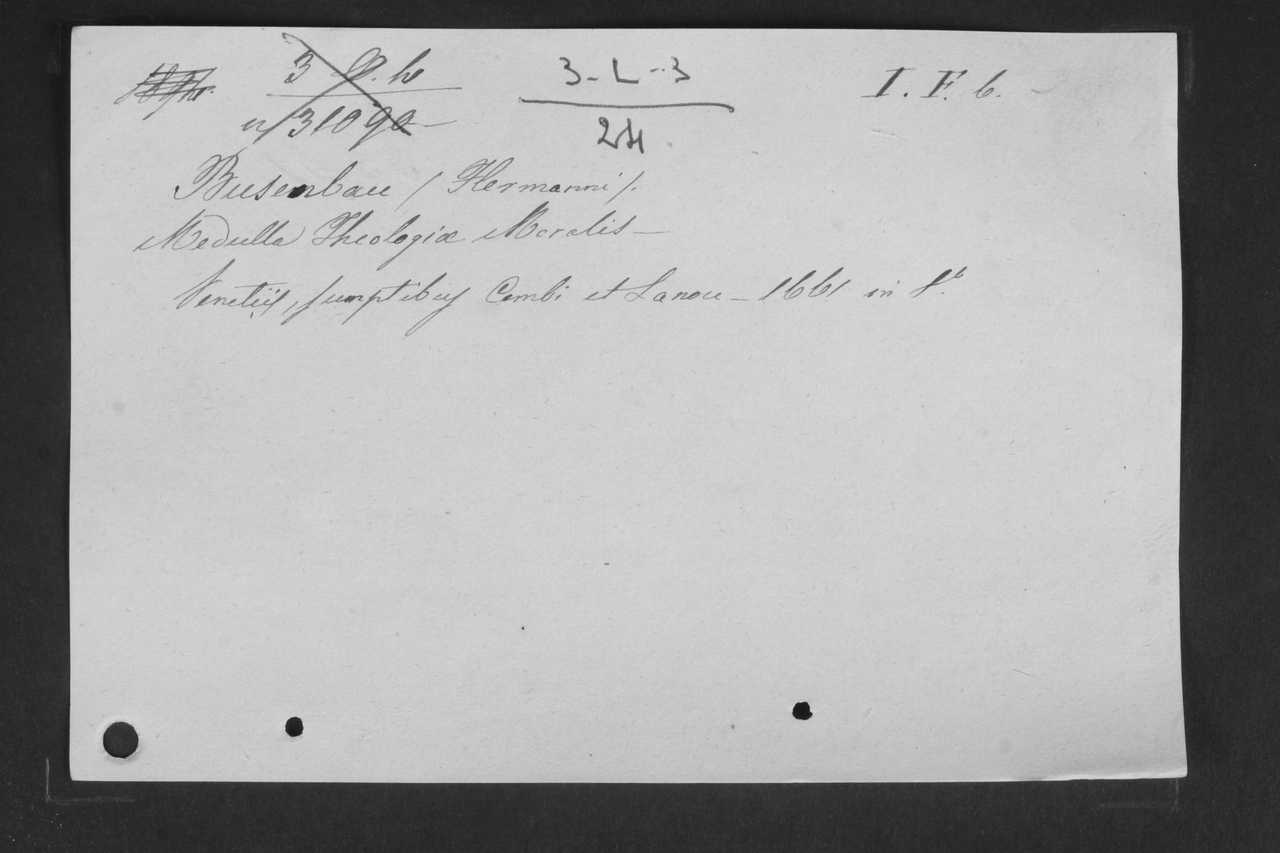 3-L-3
24
I. F. b.
Busenbau (Hermanni).
Medulla Theologiæ Moralis—
Venetiis, sumptibus Combi et Lanou — 1661 in 8.º